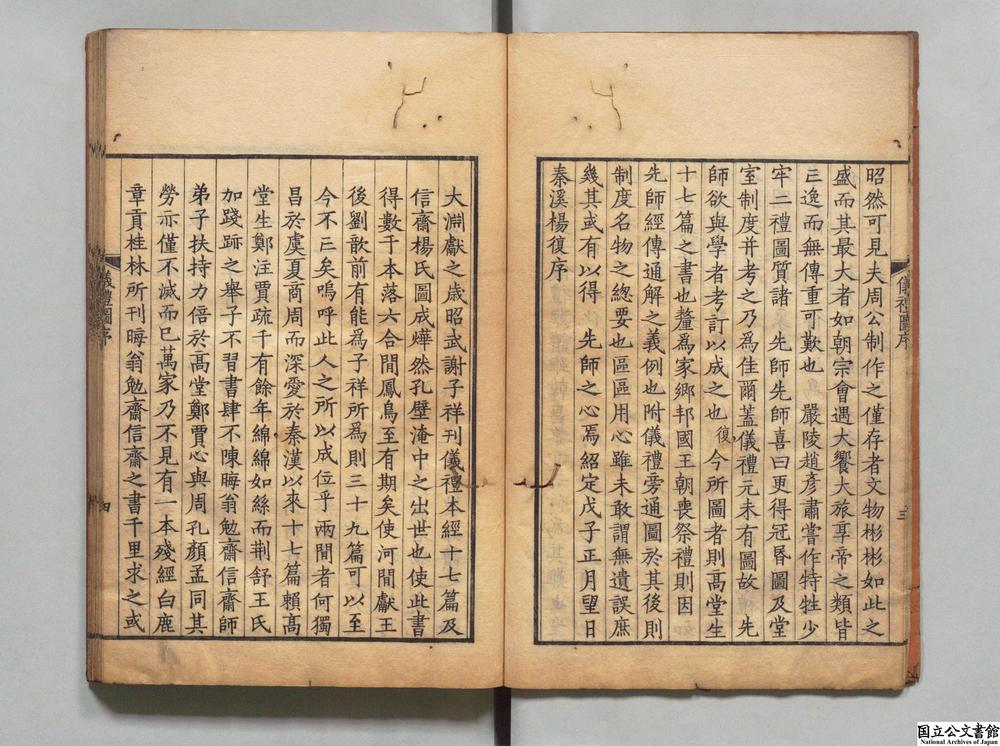 昭然可見夫周公制作之僅存者文物彬彬如此之
盛而其最大者如朝宗會遇大饗大旅享帝之類皆
亡逸而無傳重可歎也 嚴陵趙彦肅嘗作特牲少
牢二禮圖質諸 先師先師喜曰更得冠昬圖及堂
室制度并考之乃為佳爾蓋儀禮元未有圖故 先
師欲與學者考訂以成之也復今所圖者則髙堂生
十七篇之書也釐為家鄉邦國王朝喪祭禮則因
先師經傳通解之義例也附儀禮旁通圖於其後則
制度名物之總要也區區用心雖未敢謂無遺誤庶
幾其或有以得 先師之心焉紹定戊子正月望日
秦溪楊復序
儀禮圖序
三
大淵獻之歲昭武謝子祥刊儀禮本經十七篇及
信齋楊氏圖成燁然孔壁淹中之出世也使此書
得數千本落六合間鳳鳥至有期矣使河間獻王
後劉歆前有能為子祥所為則三十九篇可以至
今不亡矣嗚呼此人之所以成位乎兩間者何獨
昌於虞夏商周而深愛於秦漢以來十七篇賴髙
堂生鄭注賈疏千有餘年綿綿如絲而荆舒王氏
加踐跡之舉子不習書肆不陳晦翁勉齋信齋師
弟子扶持力倍於髙堂鄭賈心與周孔顔孟同其
勞亦僅不滅而已萬家乃不見有一本殘經白鹿
章貢桂林所刊晦翁勉齋信齋之書千里求之或
儀禮圖序
四
国立公文書館
National Archives of Japan